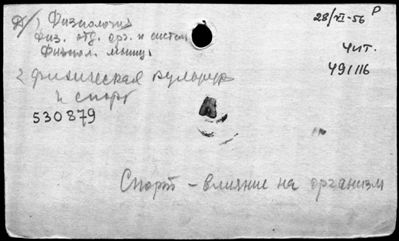 1 Физиология
Физ. отд. орг. и систем
Физиол. мышц
28/VI-56 Р
Чит.
491116
2 Физическая культура
и спорт
530879
Спорт - влияние на организм